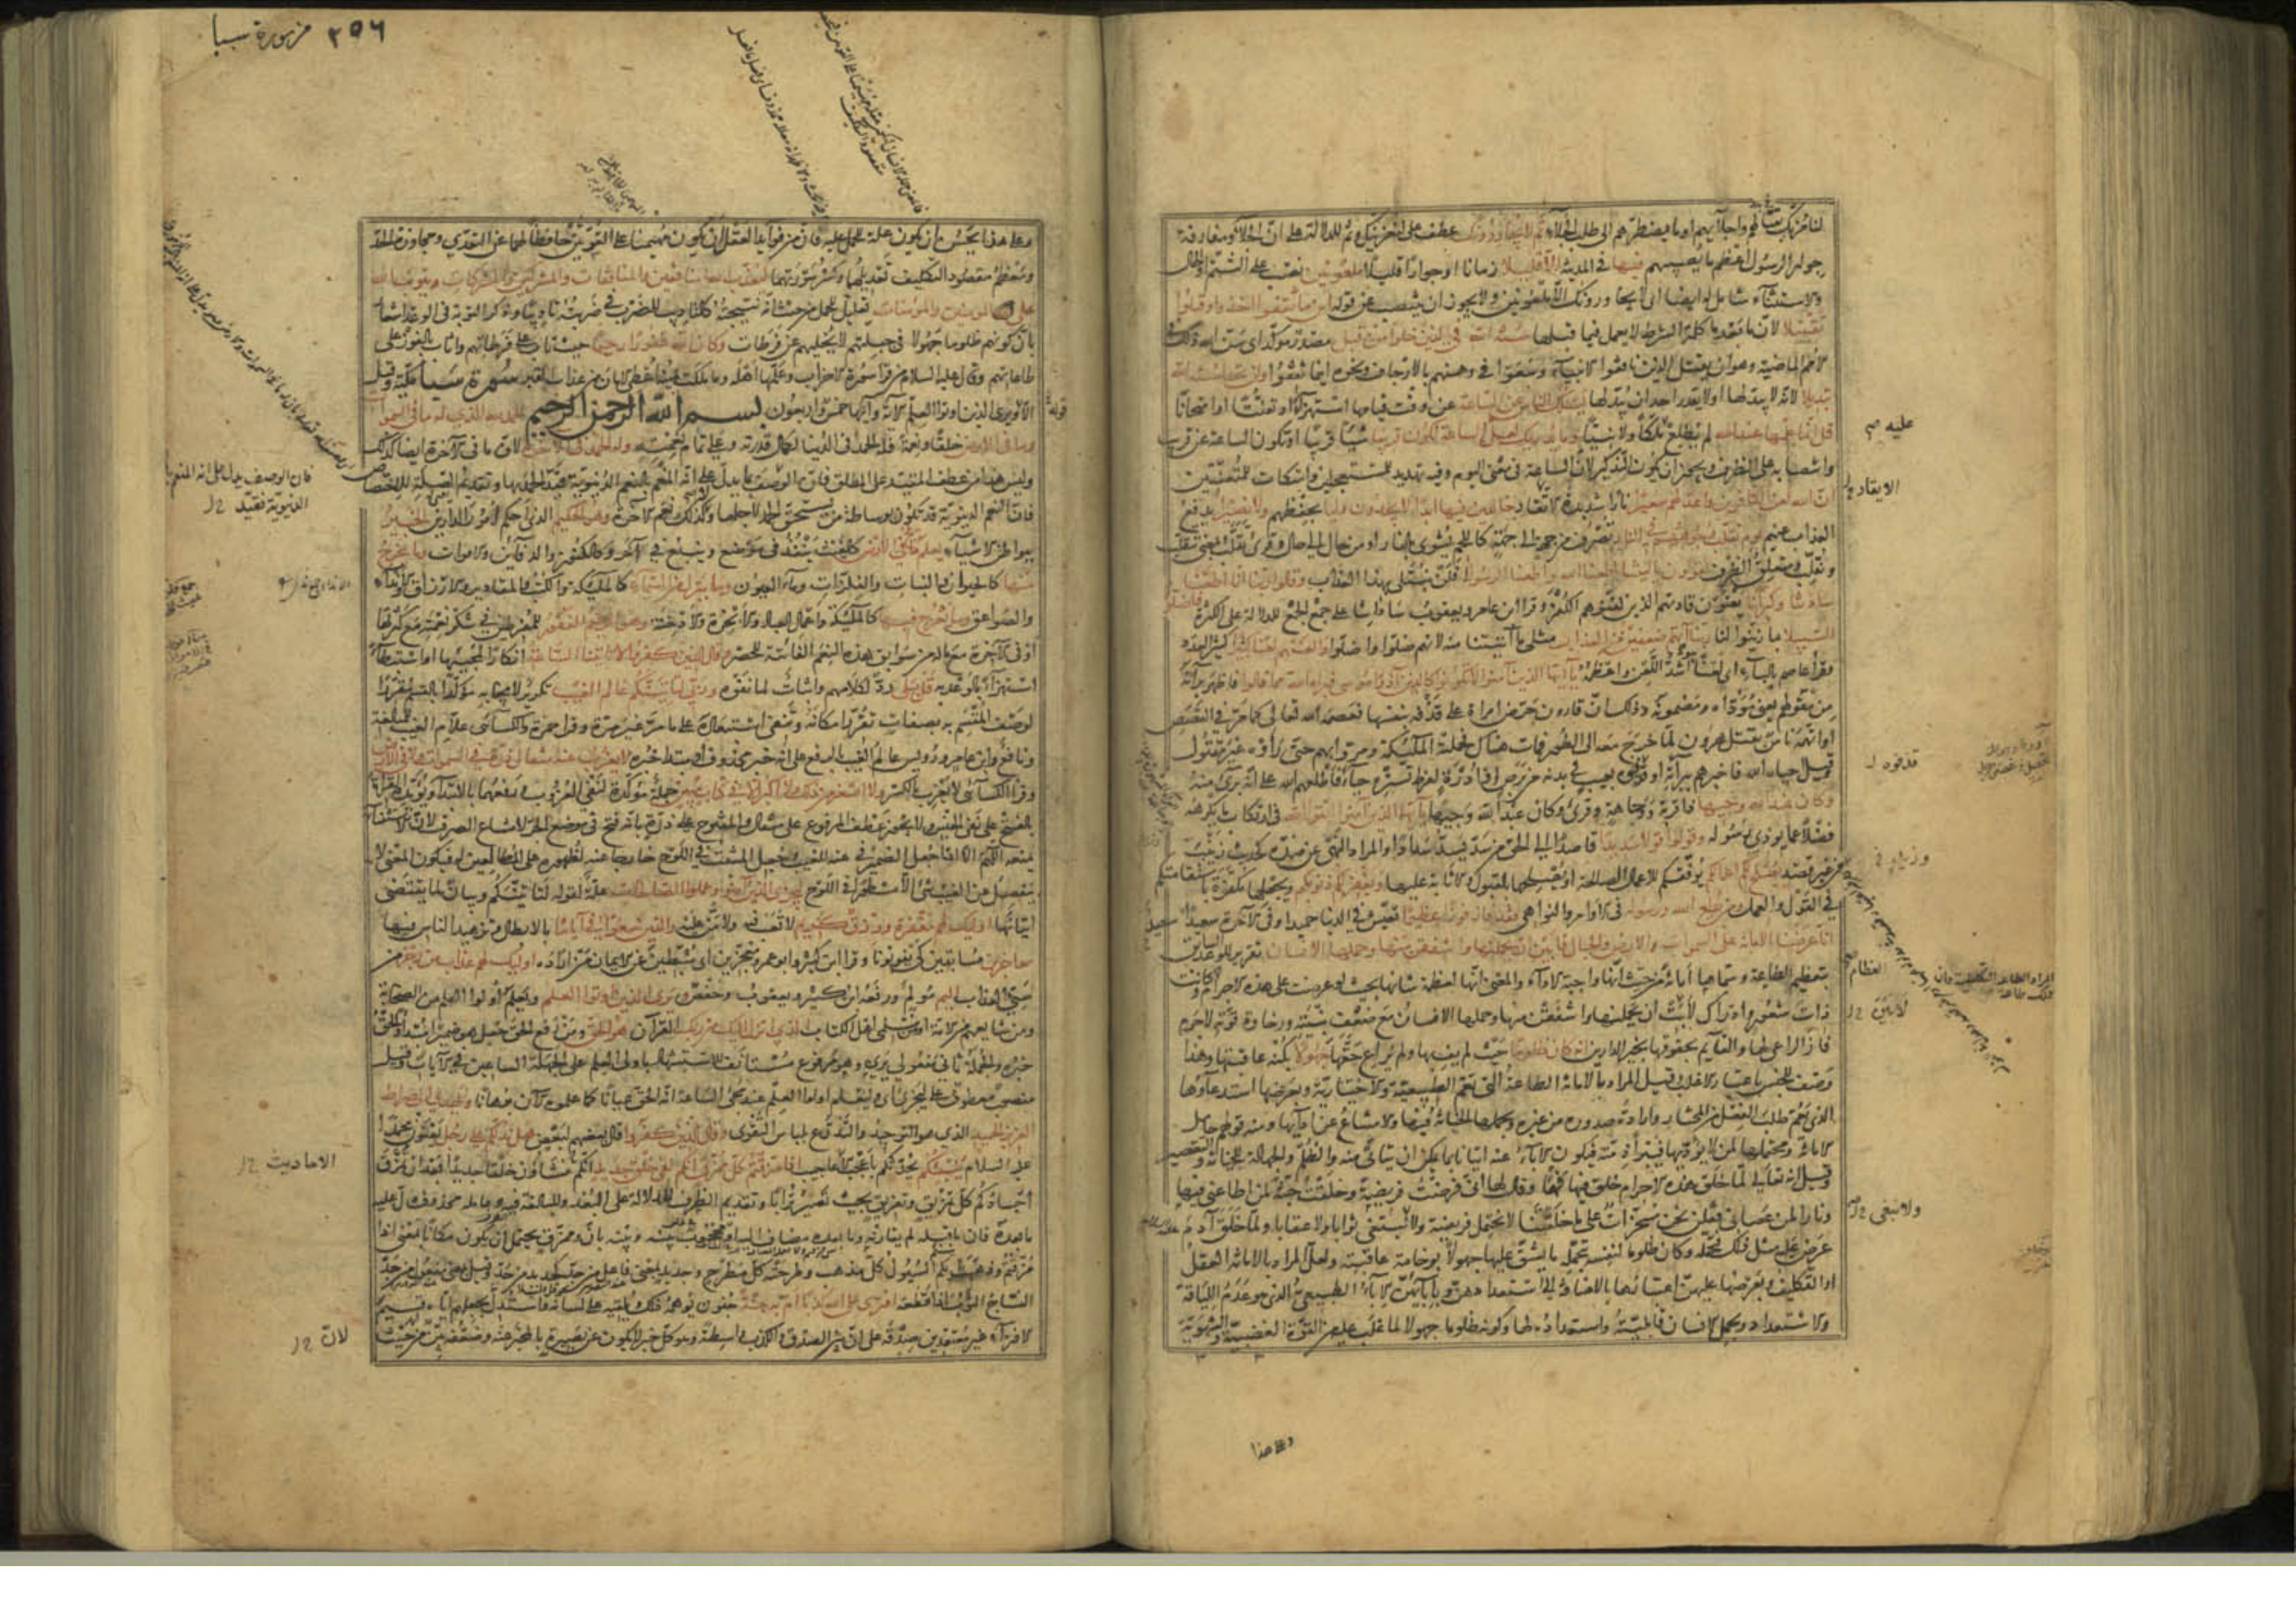 لنأمرنك بقتالهم واجلائهم او ما يضطرهم الى طلب الجلاء ثم لا يجاورونك عطف على لنغرينك وثم للدلالة على ان الجلاء ومفارقة
جوار الرسول اعظم ما يصيبهم فيها في المدينة الا قليلا زمانا او جوارا قليلا ملعونين نصب على الشتم او الحال
والاستثناء شامل له ايضا اى لا يجاورونك الا ملعونين ولا يجوز ان ينتصب عن قوله اينما ثقفوا اخذوا وقتلوا
تقتيلا لان ما بعد كلمة الشرط لا يعمل فيما قبلها سنة الله في الذين خلوا من قبل مصدر مؤكد اى سن الله ذلك في
الامم الماضية وهو ان يقتل الذين نافقوا الانبياء وسعوا في وهنهم بالارجاف ونحوه اينما ثقفوا ولن تجد لسنة الله
تبديلا لانه لا يبدلها او لا يقدر احد ان يبدلها يسئلك الناس عن الساعة عن وقت قيامها استهزاء او تعنتا او امتحانا
قل انما علمها عند الله لم يطلع عليه ملكا ولا نبيا وما يدريك لعل الساعة تكون قريبا شيئا قريبا او تكون الساعة عن قريب
وانتصابه على الظرف ويجوز ان يكون التذكير لان الساعة في معنى اليوم وفيه تهديد للمستعجلين واسكات للمتعنتين
ان الله لعن الكافرين واعد لهم سعيرا نارا شديدة الاتقاد خالدين فيها ابدا لا يجدون وليا يحفظهم ولا نصيرا يدفع
العذاب عنهم يوم تقلب وجوههم في النار تصرف من جهة الى جهة كاللحم يشوى بالنار او من حال الى حال وقرئ تقلب بمعنى تتقلب
ونقلب ومتعلق الظرف يقولون يا ليتنا اطعنا الله واطعنا الرسولا فلن نبتلى بهذا العذاب وقالوا ربنا انا اطعنا
سادتنا وكبراءنا يعنون قادتهم الذين لقنوهم الكفر وقرأ ابن عامر ويعقوب ساداتنا على جمع الجمع للدلالة على الكثرة فاضلونا
السبيلا ما زينوا لنا ربنا آتهم ضعفين من العذاب مثلى ما آتيتنا منه لانهم ضلوا واضلوا والعنهم لعنا كثيرا كثير العدد
وقرأ عاصم بالباء اى لعنا هو اشد اللعن واعظمه يا ايها الذين آمنوا لا تكونوا كالذين آذوا موسى فبرأه الله مما قالوا فاظهر براءته
من مقولهم يعنى مؤداه ومضمونه وذلك ان قارون حرض امرأة على قذفه بنفسها فعصمه الله تعالى كما مر في القصص
او اتهمه ناس بقتل هرون لما خرج معه الى الطور فمات هناك فحملته الملئكة ومروا به بهم حتى رأوه غير مقتول
وقيل احياه الله فاخبرهم ببراءته او قذفوه بعيب في بدنه من برص او ادرة لفرط تستره حياء فاطلعهم الله على انه برئ منه
وكان عند الله وجيها ذا قربة ووجاهة وقرئ وكان عبد الله وجيها يا ايها الذين آمنوا اتقوا الله في ارتكاب ما يكرهه
فضلا عما يوذى رسوله وقولوا قولا سديدا قاصدا الى الحق من سد يسد سدادا والمراد النهى عن ضده كحديث زينب
من غير قصد يصلح لكم اعمالكم يوفقكم للاعمال الصالحة او يصلحها بالقبول والاثابة عليها ويغفر لكم ذنوبكم ويجعلها مكفرة باستقامتكم
في القول والعمل ومن يطع الله ورسوله في الاوامر والنواهى فقد فاز فوزا عظيما يعيش في الدنيا حميدا وفي الآخرة سعيدا
انا عرضنا الامانة على السموات والارض والجبال فابين ان يحملنها واشفقن منها وحملها الانسان تقرير للوعد السابق
بتعظيم الطاعة وسماها امانة من حيث انها واجبة الاداء والمعنى انها لعظمة شانها بحيث لو عرضت على هذه الاجرام وكانت
ذات شعور وادراك لابت ان يحملنها واشفقن منها وحملها الانسان مع ضعف بنيته ورخاوة قوته لا جرم
فاز الراعى لها والقائم بحقوقها بخير الدارين انه كان ظلوما حيث لم يف بها ولم يراع حقها جهولا بكنه عاقبتها وهذا
وصف للجنس باعتبار الاغلب وقيل المراد بالامانة الطاعة التى تعم الطبيعية والاختيارية وبعرضها استدعاؤها
الذى يعم طلب الفعل من المختار وارادة صدوره من غيره وبحملها الخيانة فيها والامتناع عن ادائها ومنه قولهم حامل
الامانة ومحتملها لمن لا يؤديها فيبرأ ذمته فيكون الاباء عنه اتيانا بما يمكن ان يتأتى منه والظلم والجهالة للخيانة والتقصير
وقيل انه تعالى لما خلق هذه الاجرام خلق فيها فهما وقال لها انى فرضت فريضة وخلقت جنة لمن اطاعنى فيها
ونارا لمن عصانى فقلن نحن مسخرات على ما خلقتنا لا نحتمل فريضة ولا نبتغى ثوابا ولا عقابا ولما خلق آدم
عرض عليه مثل ذلك فحمله وكان ظلوما لنفسه بتحمله ما يشق عليها جهولا بوخامة عاقبته ولعل المراد بالامانة العقل
او التكليف وبعرضها عليهن اعتبارها بالاضافة الى استعدادهن وبابائهن الاباء الطبيعى الذى هو عدم اللياقة
والاستعداد وبحمل الانسان قابليته واستعداده لها وكونه ظلوما جهولا لما غلب عليه من القوة الغضبية والشهوية
وعلى هذا
عليه
قذفوه
العظام
ولا نبتغى
٢٥٦ من سورة سبا
وعلى هذا يحسن ان يكون علة للحمل عليه فان من فوائد العقل ان يكون مهيمنا على القوتين حافظا لهما عن التعدى ومجاوزة الحد
ومعظم مقصود التكليف تعديلهما وكسر سورتهما ليعذب الله المنافقين والمنافقات والمشركين والمشركات ويتوب الله
على المؤمنين والمؤمنات تعليل للحمل من حيث انه نتيجته كالتاديب للضرب في ضربته تاديبا وذكر التوبة في الوعد اشعار
بان كونهم ظلوما جهولا في جبلتهم لا يخليهم عن فرطات وكان الله غفورا رحيما حيث تاب على فرطاتهم واثاب بالفوز على
طاعاتهم وقال عليه السلام من قرأ سورة الاحزاب وعلمها اهله وما ملكت يمينه اعطى الامان من عذاب القبر سورة سبا مكية وقيل
الا ويرى الذين اوتوا العلم الآية وآيها خمس واربعون بسم الله الرحمن الرحيم الحمد لله الذى له ما في السموات
وما في الارض خلقا ونعمة فله الحمد في الدنيا لكمال قدرته وعلى تمام نعمته وله الحمد في الآخرة لان ما في الآخرة ايضا كذلك
وليس هذا من عطف المقيد على المطلق فان الوصف بما يدل على انه المنعم بالنعم الدنيوية قيد الحمد بها وتقديم الصلة للاختصاص
فان النعم الدنيوية قد تكون بوساطة من يستحق الحمد لاجلها وكذلك نعم الآخرة وهو الحكيم الذى احكم امور الدارين الخبير
ببواطن الاشياء يعلم ما يلج في الارض كالغيث ينفذ في موضع وينبع في آخر وكالكنوز والدفائن والاموات وما يخرج
منها كالحيوان والنبات والفلزات وماء العيون وما ينزل من السماء كالملئكة والكتب والمقادير والارزاق والانداء
والصواعق وما يعرج فيها كالملئكة واعمال العباد والابخرة والادخنة وهو الرحيم الغفور للمفرطين في شكر نعمته مع كثرتها
او في الآخرة مع ماله من سوابق هذه النعم الفائتة للحصر وقال الذين كفروا لا تاتينا الساعة انكارا لمجيئها او استبطاء
استهزاء بالوعد به قل بلى رد لكلامهم واثبات لما نفوه وربى لتاتينكم عالم الغيب تكرير لايجابه مؤكدا بالقسم مقررا
لوصف المقسم به بصفات تقرر امكانه وتنفى استبعاده على ما مر غير مرة وقرأ حمزة والكسائى علام الغيب للمبالغة
ونافع وابن عامر ورويس عالم الغيب بالرفع على انه خبر محذوف او مبتدا خبره لا يعزب عنه مثقال ذرة في السموات ولا في الارض
وقرأ الكسائى لا يعزب بالكسر ولا اصغر من ذلك ولا اكبر الا في كتاب مبين جملة مؤكدة لنفى العزوب ورفعهما بالابتداء ويؤيده القراءة
بالفتح على نفى الجنس ولا يجوز عطف المرفوع على مثقال والمفتوح على ذرة بانه فتح في موضع الجر لامتناع الصرف لان الاستثناء
يمنعه اللهم الا اذا جعل الضمير في عنه للغيب وجعل المثبت في اللوح خارجا عنه لظهوره على المطالعين له فيكون المعنى لا
ينفصل عن الغيب شئ الا مسطورا في اللوح ليجزى الذين آمنوا وعملوا الصالحات علة لقوله لتاتينكم وبيان لما يقتضى
اتيانها اولئك لهم مغفرة ورزق كريم لا تعب فيه ولا من عليه والذين سعوا في آياتنا بالابطال وتزهيد الناس فيها
معاجزين مسابقين كى يفوتونا وقرأ ابن كثير وابو عمرو معجزين اى مثبطين عن الايمان من اراده اولئك لهم عذاب من رجز من
سيئ العذاب اليم مولم ورفعه ابن كثير ويعقوب وحفص ويرى الذين اوتوا العلم ويعلم اولوا العلم من الصحابة
ومن شايعهم من الامة او من مسلمى اهل الكتاب الذى انزل اليك من ربك القرآن هو الحق ومن رفع الحق جعل هو ضميرا مبتدا والحق
خبره والجملة ثانى مفعولى يرى وهو مرفوع مستانف للاستشهاد باولى العلم على الجهلة الساعين في الآيات وقيل
منصوب معطوف على ليجزى اى وليعلم اولوا العلم عند مجئ الساعة انه الحق عيانا كما علموه الآن برهانا ويهدى الى صراط
العزيز الحميد الذى هو التوحيد والتدرع بلباس التقوى وقال الذين كفروا قال بعضهم لبعض هل ندلكم على رجل يعنون محمدا
عليه السلام ينبئكم يحدثكم باعجب الاعاجيب اذا مزقتم كل ممزق انكم لفى خلق جديد انكم تنشاون خلقا جديدا بعد ان تمزق
اجسادكم كل تمزيق وتفريق بحيث تصير ترابا وتقديم الظرف للدلالة على البعد والمبالغة فيه وعامله محذوف دل عليه
ما بعده فان ما قبله لم يقارنه وما بعده مضاف اليه او محجوب بينه وبينه بان وممزق يحتمل ان يكون مكانا بمعنى اذا
مزقتم وذهبت بكم السيول كل مذهب وطرحته كل مطرح وجديد بمعنى فاعل من جد كحديد من حد وقيل بمعنى مفعول من جد
النساج الثوب اذا قطعه افترى على الله كذبا ام به جنة جنون يوهمه ذلك ويلقيه على لسانه واستدل بجعلهم اياه قسيم
الافتراء غير معتقدين صدقه على ان بين الصدق والكذب واسطة وهو كل خبر لا يكون عن بصيرة بالمخبر عنه وضعفه بين من حيث
قوله
فان الوصف بما يدل على انه المنعم بالنعم
الدنيوية فقيد
الاحاديث
لان